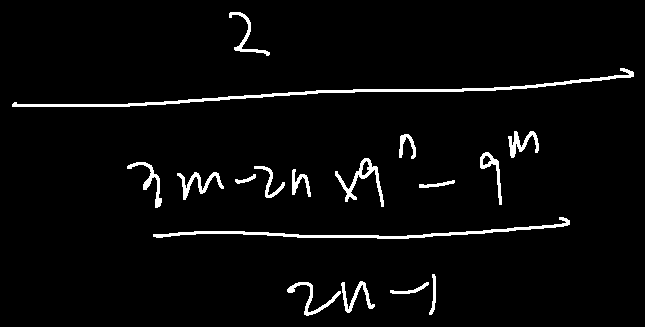 2
3m-2n x9^n - 9^m
2n-1